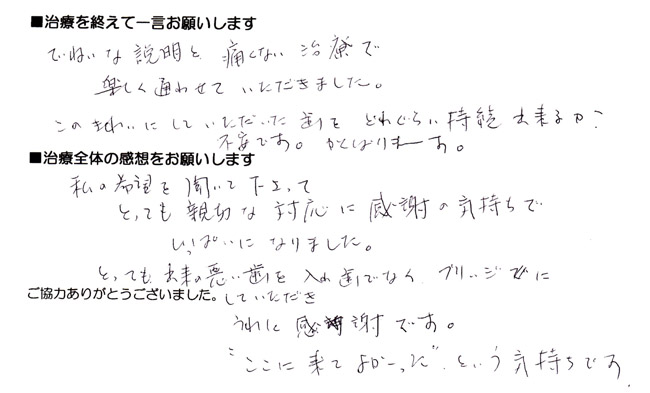 ■治療を終えて一言お願いします
ていねいな説明と痛くない治療で
楽しく通わせていただきました。
このきれいにしていただいた歯をどれぐらい持続出来るか?
不安です。がんばりまーす。
■治療全体の感想をお願いします
私の希望を聞いて下さって
とっても親切な対応に感謝の気持ちで
いっぱいになりました。
とっても出来の悪い歯を入れ歯でなくブリッジに
ご協力ありがとうございました。していただき
うれしく感謝です。
"ここに来てよかった"という気持ちです